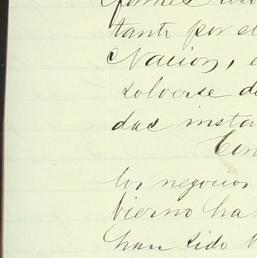 formes
tanto por el
Nacion,
solverse de
das insta
Con
los negocios
bierno ha
han sido